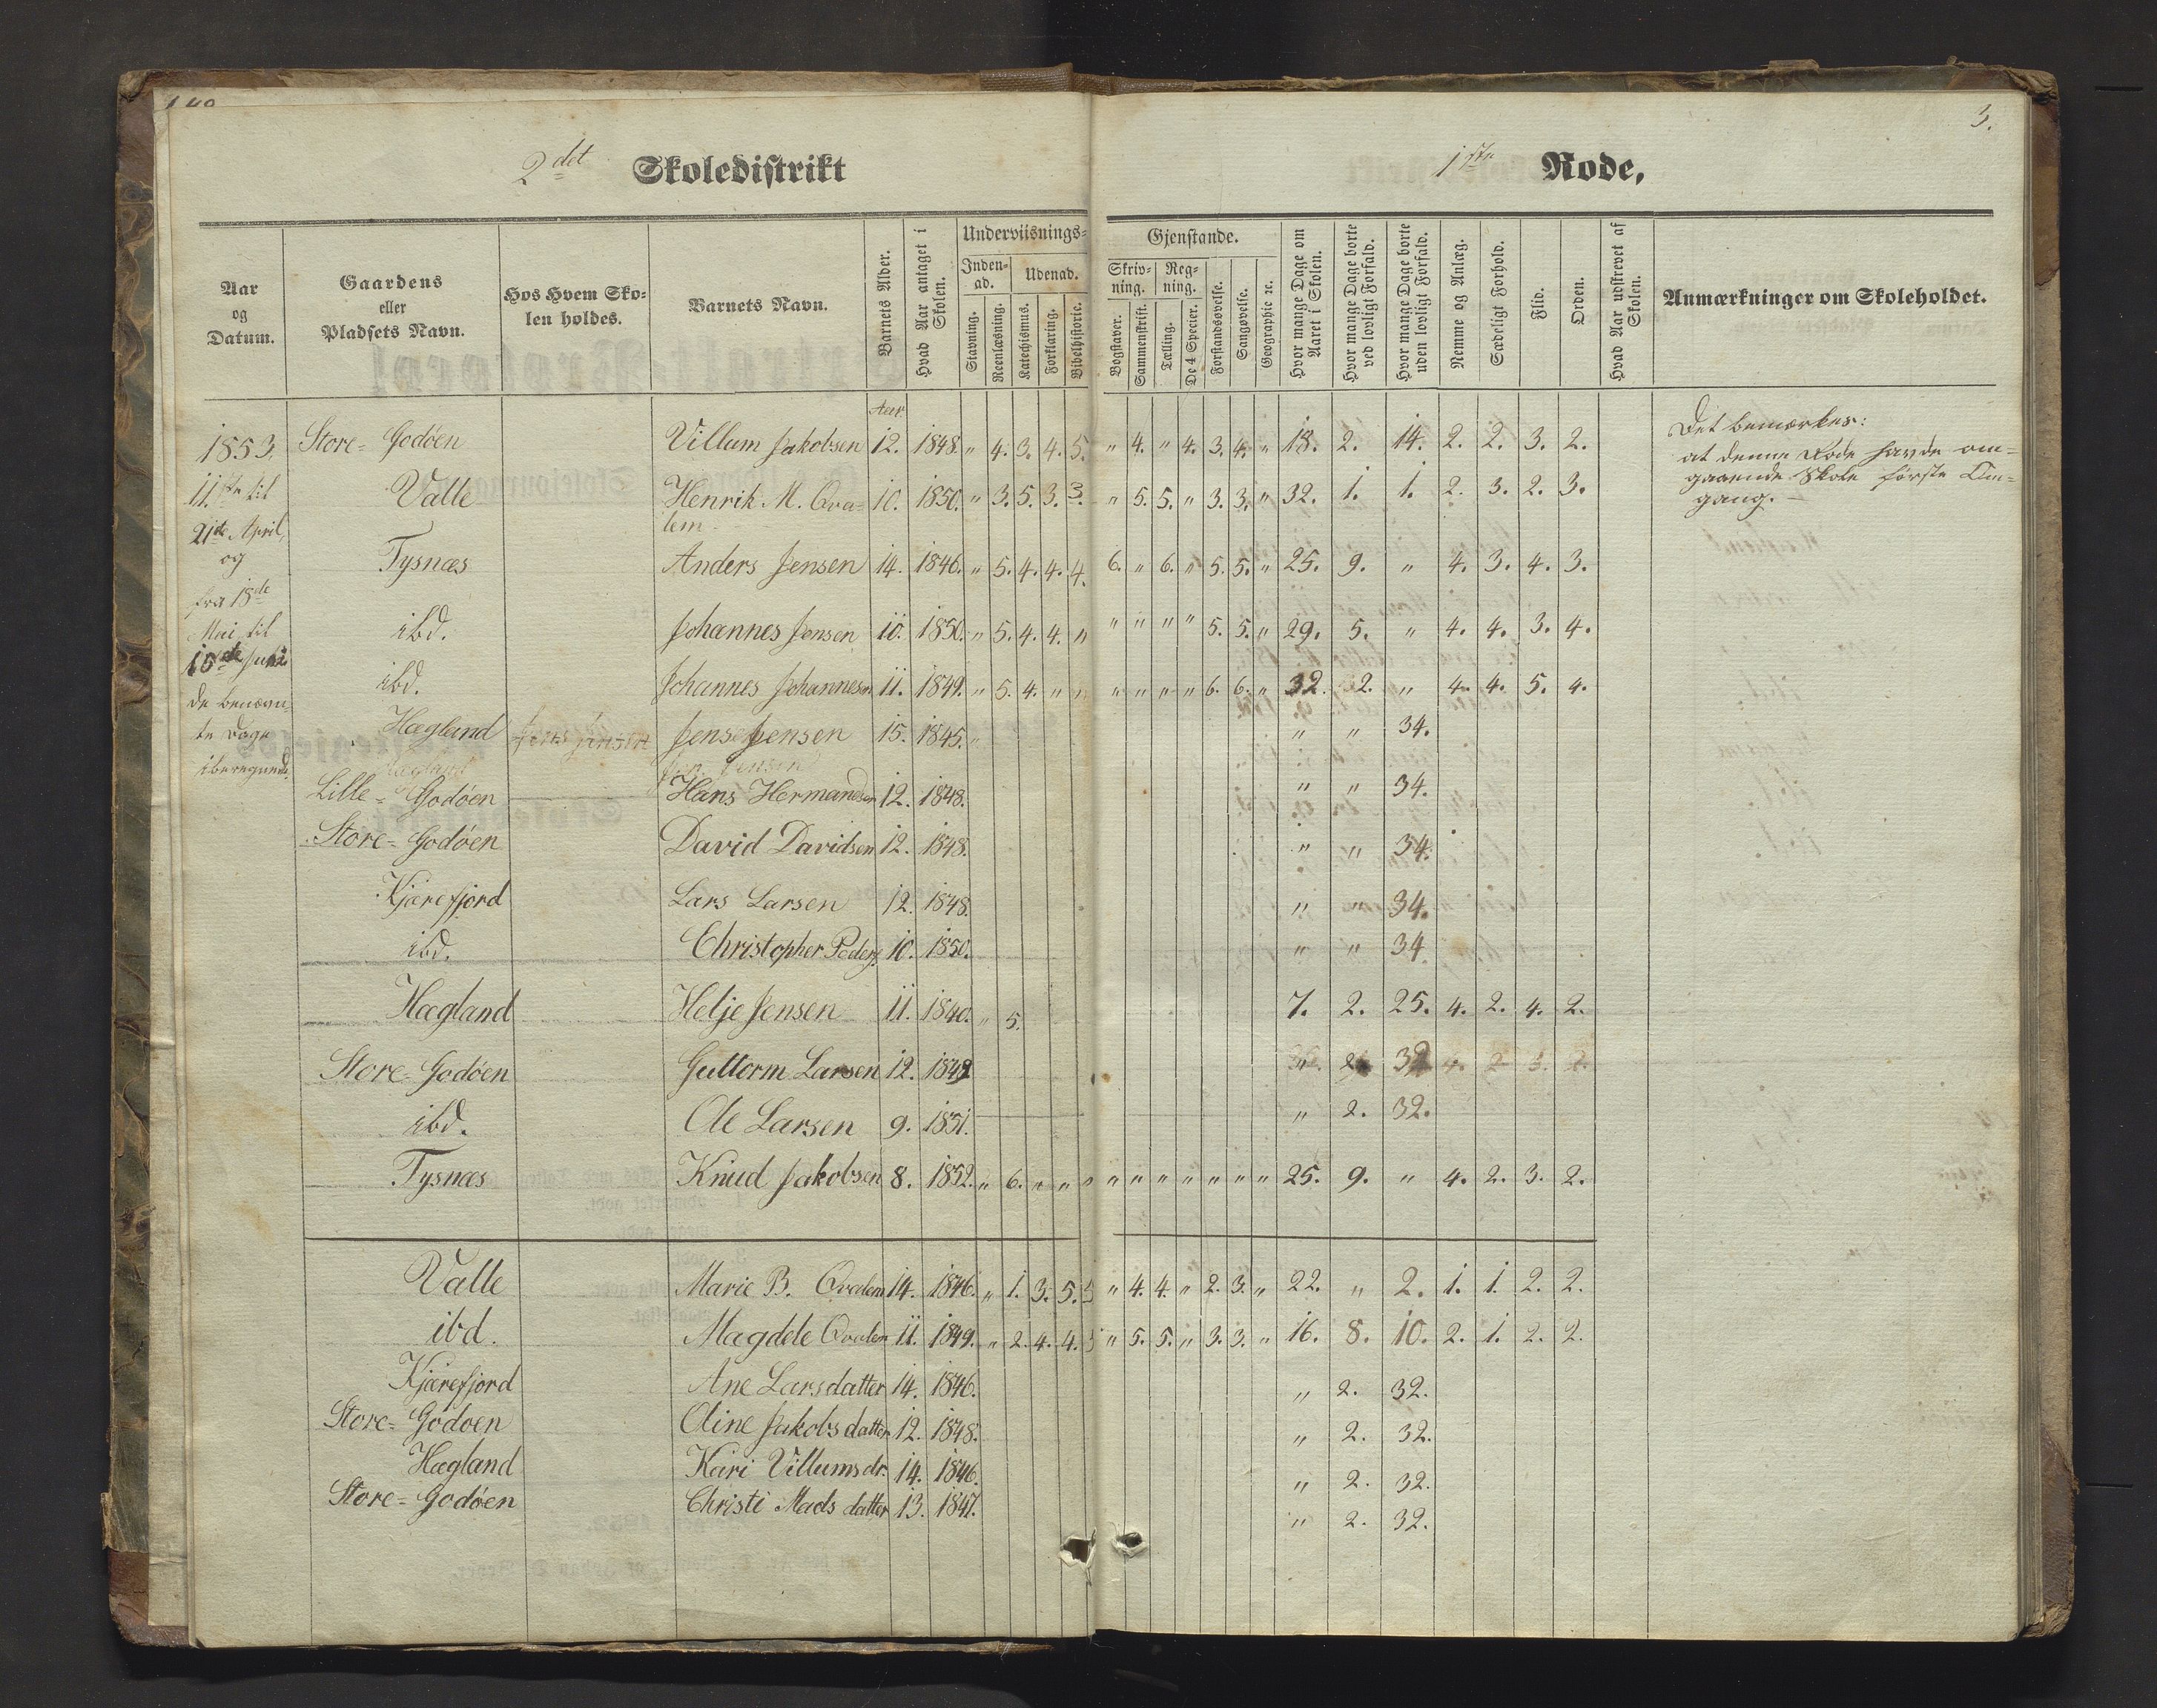 2det Skoledistrikt
1ste Rode,
3.
Aar og Datum.
Gaardens eller Pladsets Navn.
Hos Hvem Skolen holdes.
Barnets Navn.
Barnets Alder.
Hvad Aar antaget i Skolen.
Underviisnings-
Inden-ad.
Udenad.
Stavning.
Reenlæsning.
Katechismus.
Forklaring.
Bibelhistorie.
Gjenstande.
Skriv-ning.
Reg-ning.
Bogstaver.
Sammenskrift.
Tælling.
De 4 Specier.
Forstandsøvelse.
Sangøvelse.
Geographie ꝛc.
Hvor mange Dage om Aaret i Skolen.
Hvor mange Dage borte ved lovligt Forfald.
Hvor mange Dage borte uden lovligt Forfald.
Nemme og Anlæg.
Sædeligt Forhold.
Flid.
Orden.
Hvad Aar udskrevet af Skolen.
Anmærkninger om Skoleholdet.
Aar.
1853.
11te til
21de April,
og
fra 18de
Mai til
10de Juni
de benævn-
te Dage
iberegnede.
Store- Godøen Villum Jakobsen 12. 1848. " 4. 3. 4. 5. " 4. " 4. 3. 4. " 18. 2. 14. 2. 2. 3. 2.
Valle Henrik M. Qva- 10. 1850. " 3. 5. 3. 3. " 5. 5. " 3. 3. " 32. 1. 1. 2. 3. 2. 3.
lem
Tysnæs Anders Jensen 14. 1846. " 5. 4. 4. 4. 6. " 6. " 5. 5. " 25. 9. " 4. 3. 4. 3.
ibd. Johannes Jensen 10. 1850. " 5. 4. 4. " " " " " 5. 5. " 29. 5. " 4. 4. 3. 4.
ibd. Johannes Johannesn 11. 1849. " 5. 4. " " " " " " 6. 6. " 32. 2. " 4. 4. 5. 4.
Hægland Jens Jensen Jens Jensen 15. 1845. " " " 34.
Hægland Jens Jensen
Lille- Godøen Hans Hermandsen 12. 1848. " " 34.
Store- Godøen David Davidsen 12. 1848. " " 34.
Kjærefjord Lars Larsen 12. 1848. " " 34.
ibd. Christopher Peders 10. 1850. " " 34.
Hægland Helje Jensen 11. 1840. " 5. 7. 2. 25. 4. 2. 4. 2.
Store- Godøen Guttorm Larsen 12. 1849 " 2. 32 4. 2 3. 2.
ibd. Ole Larsen 9. 1851. " 2. 32.
Tysnæs Knud Jakobsen 8. 1852. " 6. " " " " " " " " " " 25. 9. " 4. 2. 3. 2.
Valle Marie B. Qvalem 14. 1846. " 1. 3. 5. 5 " 4. 4. " 2. 3. " 22. " 2. 1. 1. 2. 2.
ibd. Magdele Qvalem 11. 1849. " 2. 4. 4. 5 " 5. 5. " 3. 3. " 16. 8. 10. 2. 1. 2. 2.
Kjærefjord Ane Larsdatter 14. 1846. " 2. 32.
Store- Godøen Oline Jakobsdatter 12. 1848. " 2. 32.
Hægland Kari Villumsdr. 14. 1846. " 2. 32.
Store- Godøen Christi Madsdatter 13. 1847. " 2. 32.
Det bemærkes:
at denne Rode havde om-
gaaende Skole første Om-
gang. —